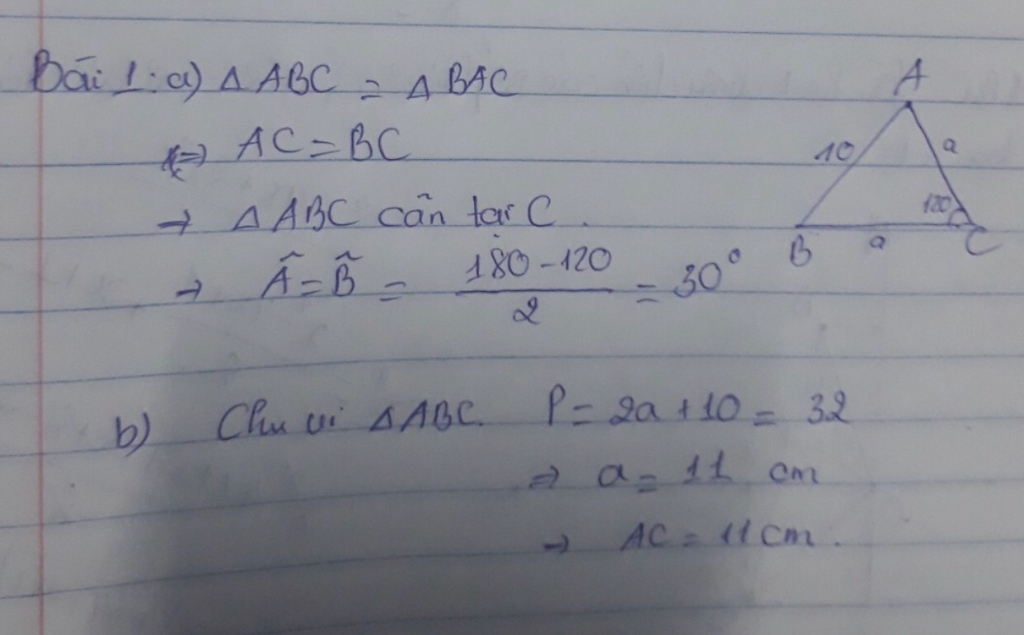 Bài 1: a) △ ABC = △ BAC
⇔ AC = BC
→ △ ABC cân tại C.
→ Â = B̂ = (180 - 120)/2 = 30°
A
10
a
120
B
a
C
b) Chu vi △ABC. P = 2a + 10 = 32
⇒ a = 11 cm
→ AC = 11 cm.